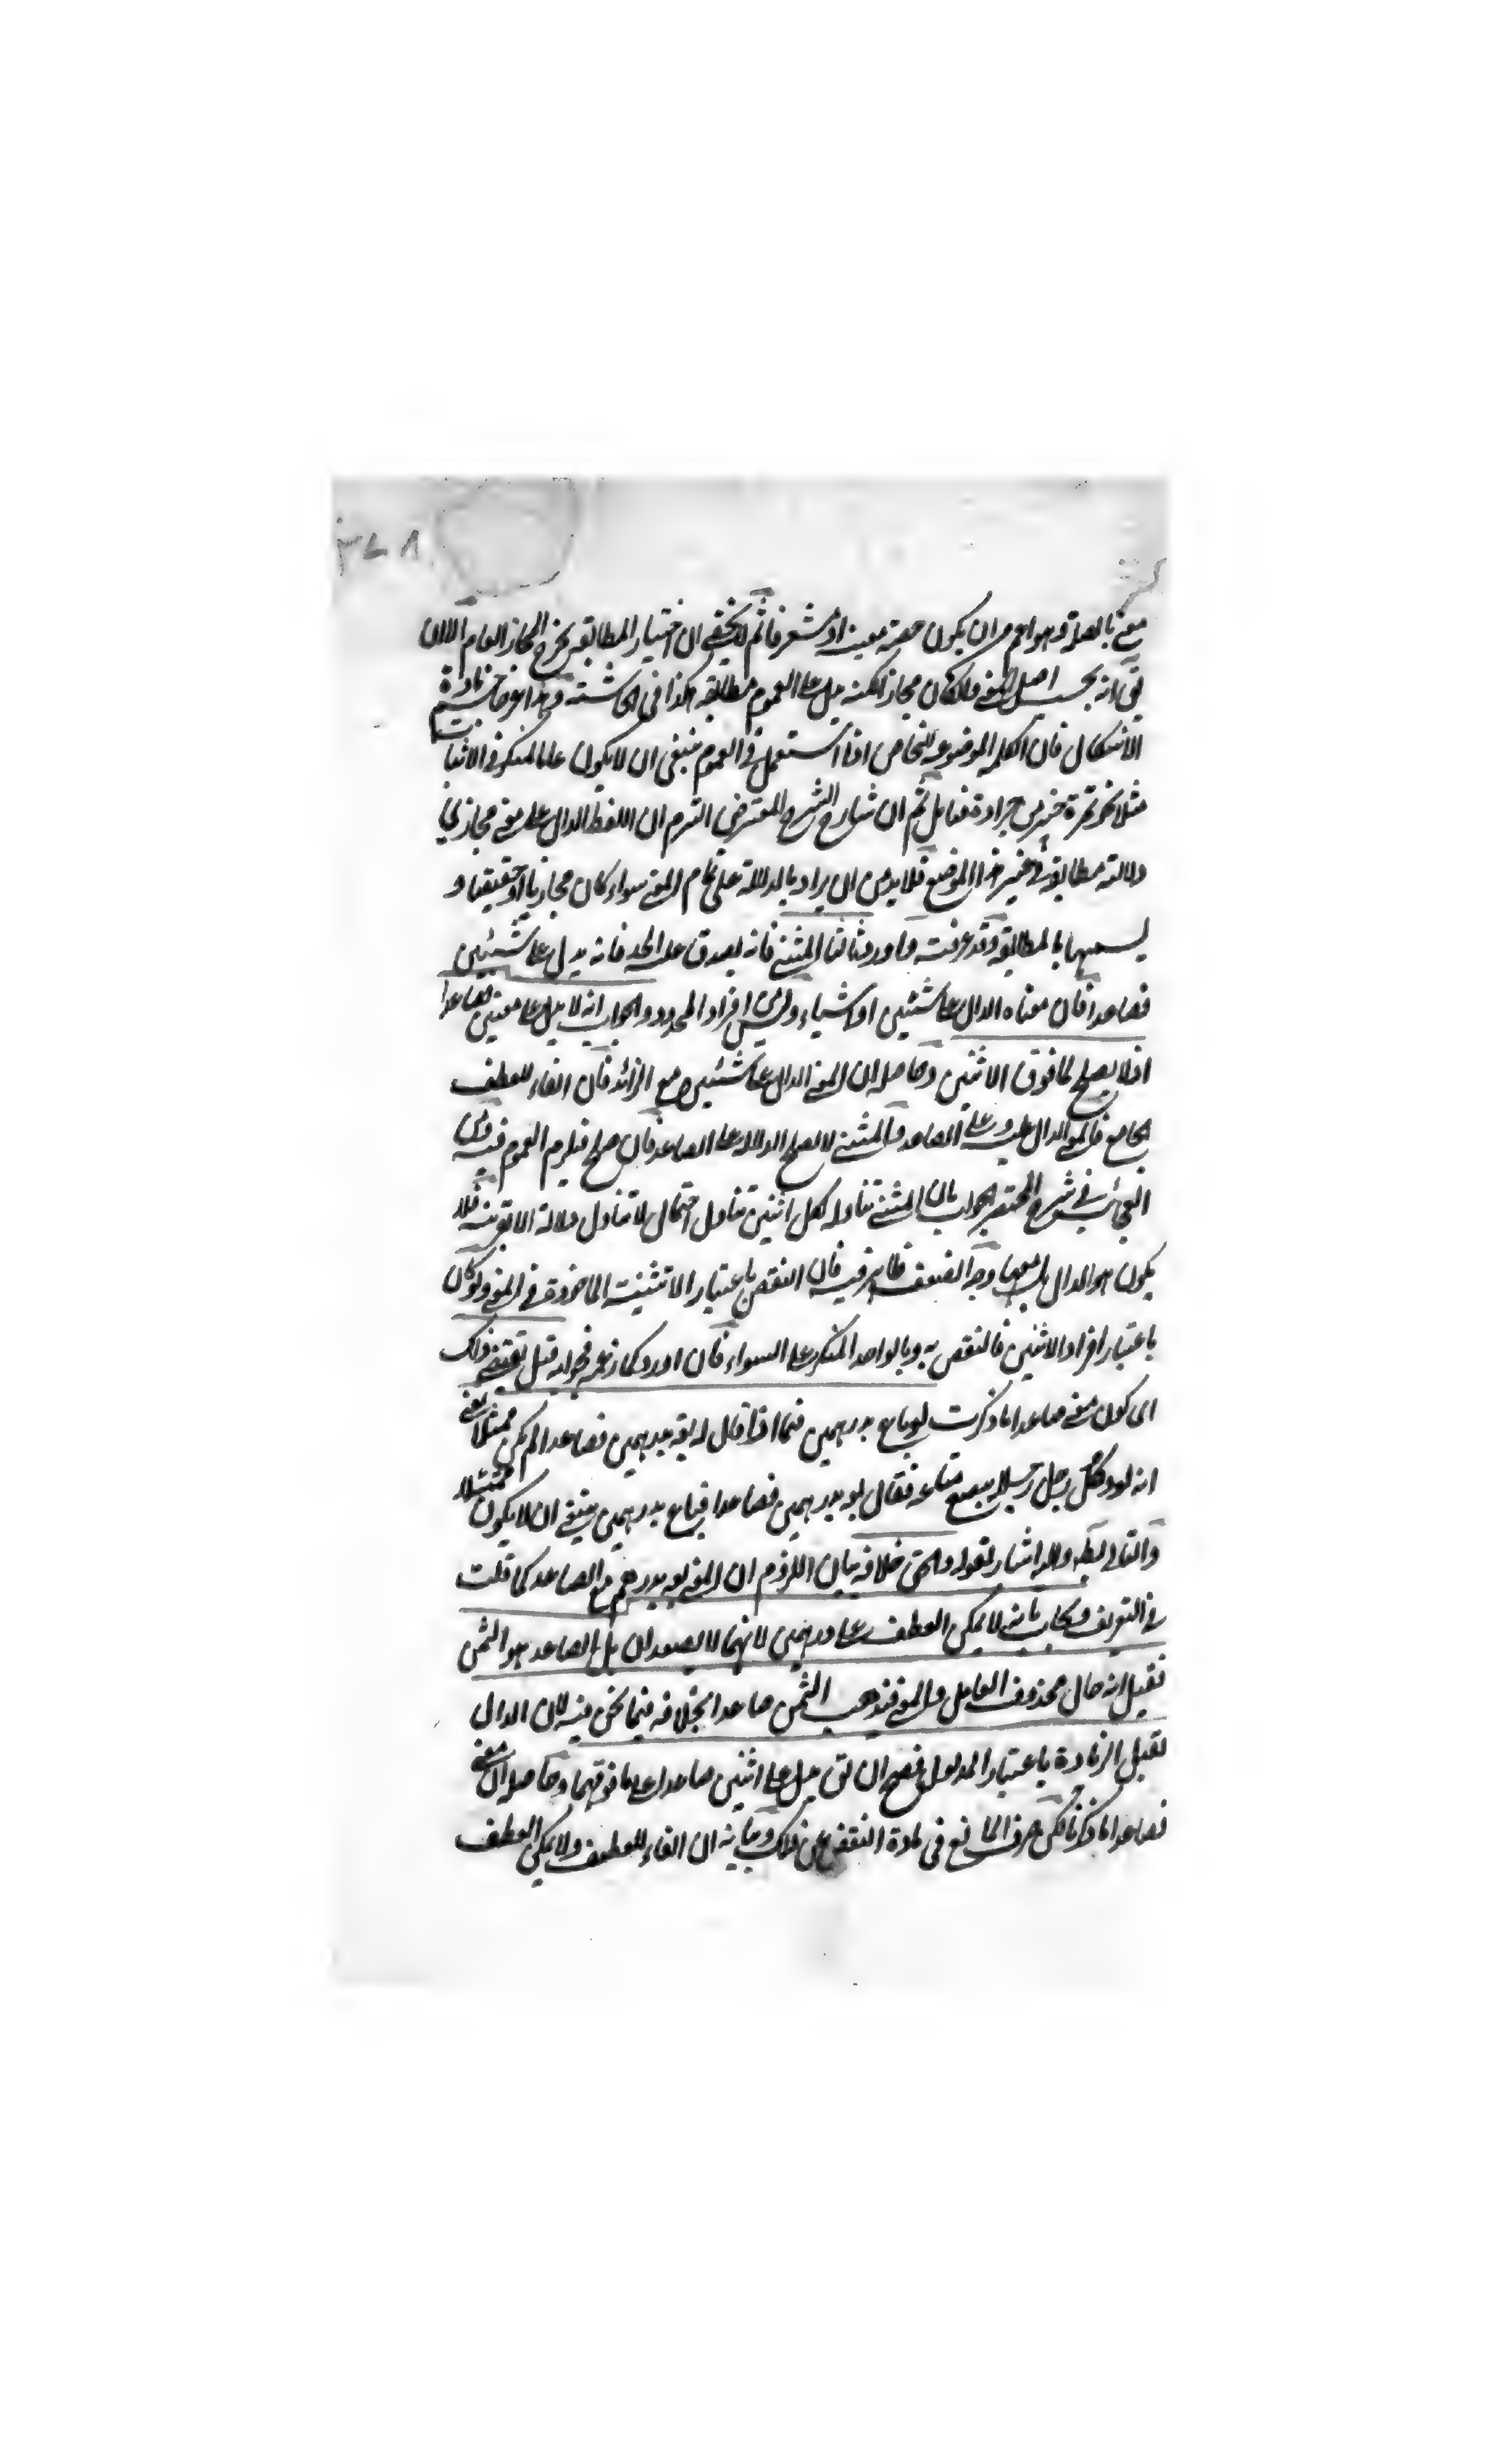 معنى بالصلة وهو اعم من ان يكون حصة معينة او فافهم ثم لا يخفى ان اختيار المطابقة يخرج المجاز العام الا ان
يق انه بحسب اصل المعنى وان كان مجازا لكنه يدل على العموم مطابقة هكذا في الحاشية وهذا زيادة
الاشكال فان الكلمة الموضوعة للخاص اذا استعمل في العموم ينبغي ان لا يكون عاما كالمنكر في الاثبات
مثلا نحو تمرة خير من جرادة فتأمل ثم ان شارح الشرح المعترض التزم ان اللفظ الدال على معنى مجازي
دلالته مطابقة في غير هذا الموضع فلا بد من ان يراد بالدلالة على تمام المعنى سواء كان مجازيا او حقيقيا و
يسميها بالمطابقة وقد عرفت واورد ثالثا المثنى فانه يصدق عليه الحد فانه يدل على شيئين
فصاعدا فان معناه الدال على شيئين او اشياء وليس من افراد المحدود والجواب انه لا يدل على معنيين فصاعدا
اذ لا يصلح لما فوق الاثنين وحاصله ان المعنى الدال على شيئين مع الزائد فان الفاء للعطف
الجامع فالمعنى الدال عليه وعلى الصاعد والمثنى لا يصلح الدلالة على الصاعد فان صلح فيلزم العموم فيه ومن
العجائب في شرح المختصر الجواب بان المثنى تناوله لكل اثنين تناول احتمال لا تناول دلالة الا بقرينة فلا
يكون هو الدال بل معها وجه الضعف ظاهر فيه فان النقض باعتبار الاثنينية الماخوذة في المعنى ولو كان
باعتبار افراد الاثنين فالنقض به وبالواحد المنكر على السواء فان اورد كما زعمه في جوابه قيل يقتضي ذلك
اي كون معنى صاعدا ما ذكرت لو باع بدرهمين فيما اذا قال له بعه بدرهمين فصاعدا لم يكن ممتثلا يعني
انه لو وكل رجل رجلا ببيع متاعه فقال بع بدرهمين فصاعدا فباع بدرهمين ينبغي ان لا يكون ممتثلا
والتالي بط واليه اشار بقوله والحق خلافه بيان اللزوم ان المعنى بعه بدرهم مع الصاعد كما قلت
في التعريف ويجاب بانه لا يمكن العطف على درهمين لانهما لا يصعدان بل الصاعد هو الثمن
فقيل انه حال محذوف العامل والمعنى فيذهب الثمن صاعدا بخلافه فيما نحن فيه لان الدال
يقبل الزيادة باعتبار المدلول فصح ان يق يدل على اثنين صاعدا على ما فوقهما وحاصله ان معنى
فصاعدا ما ذكرنا لكن صرف المانع في مادة النقض عن ذلك وبيانه ان الفاء للعطف ولا يمكن العطف